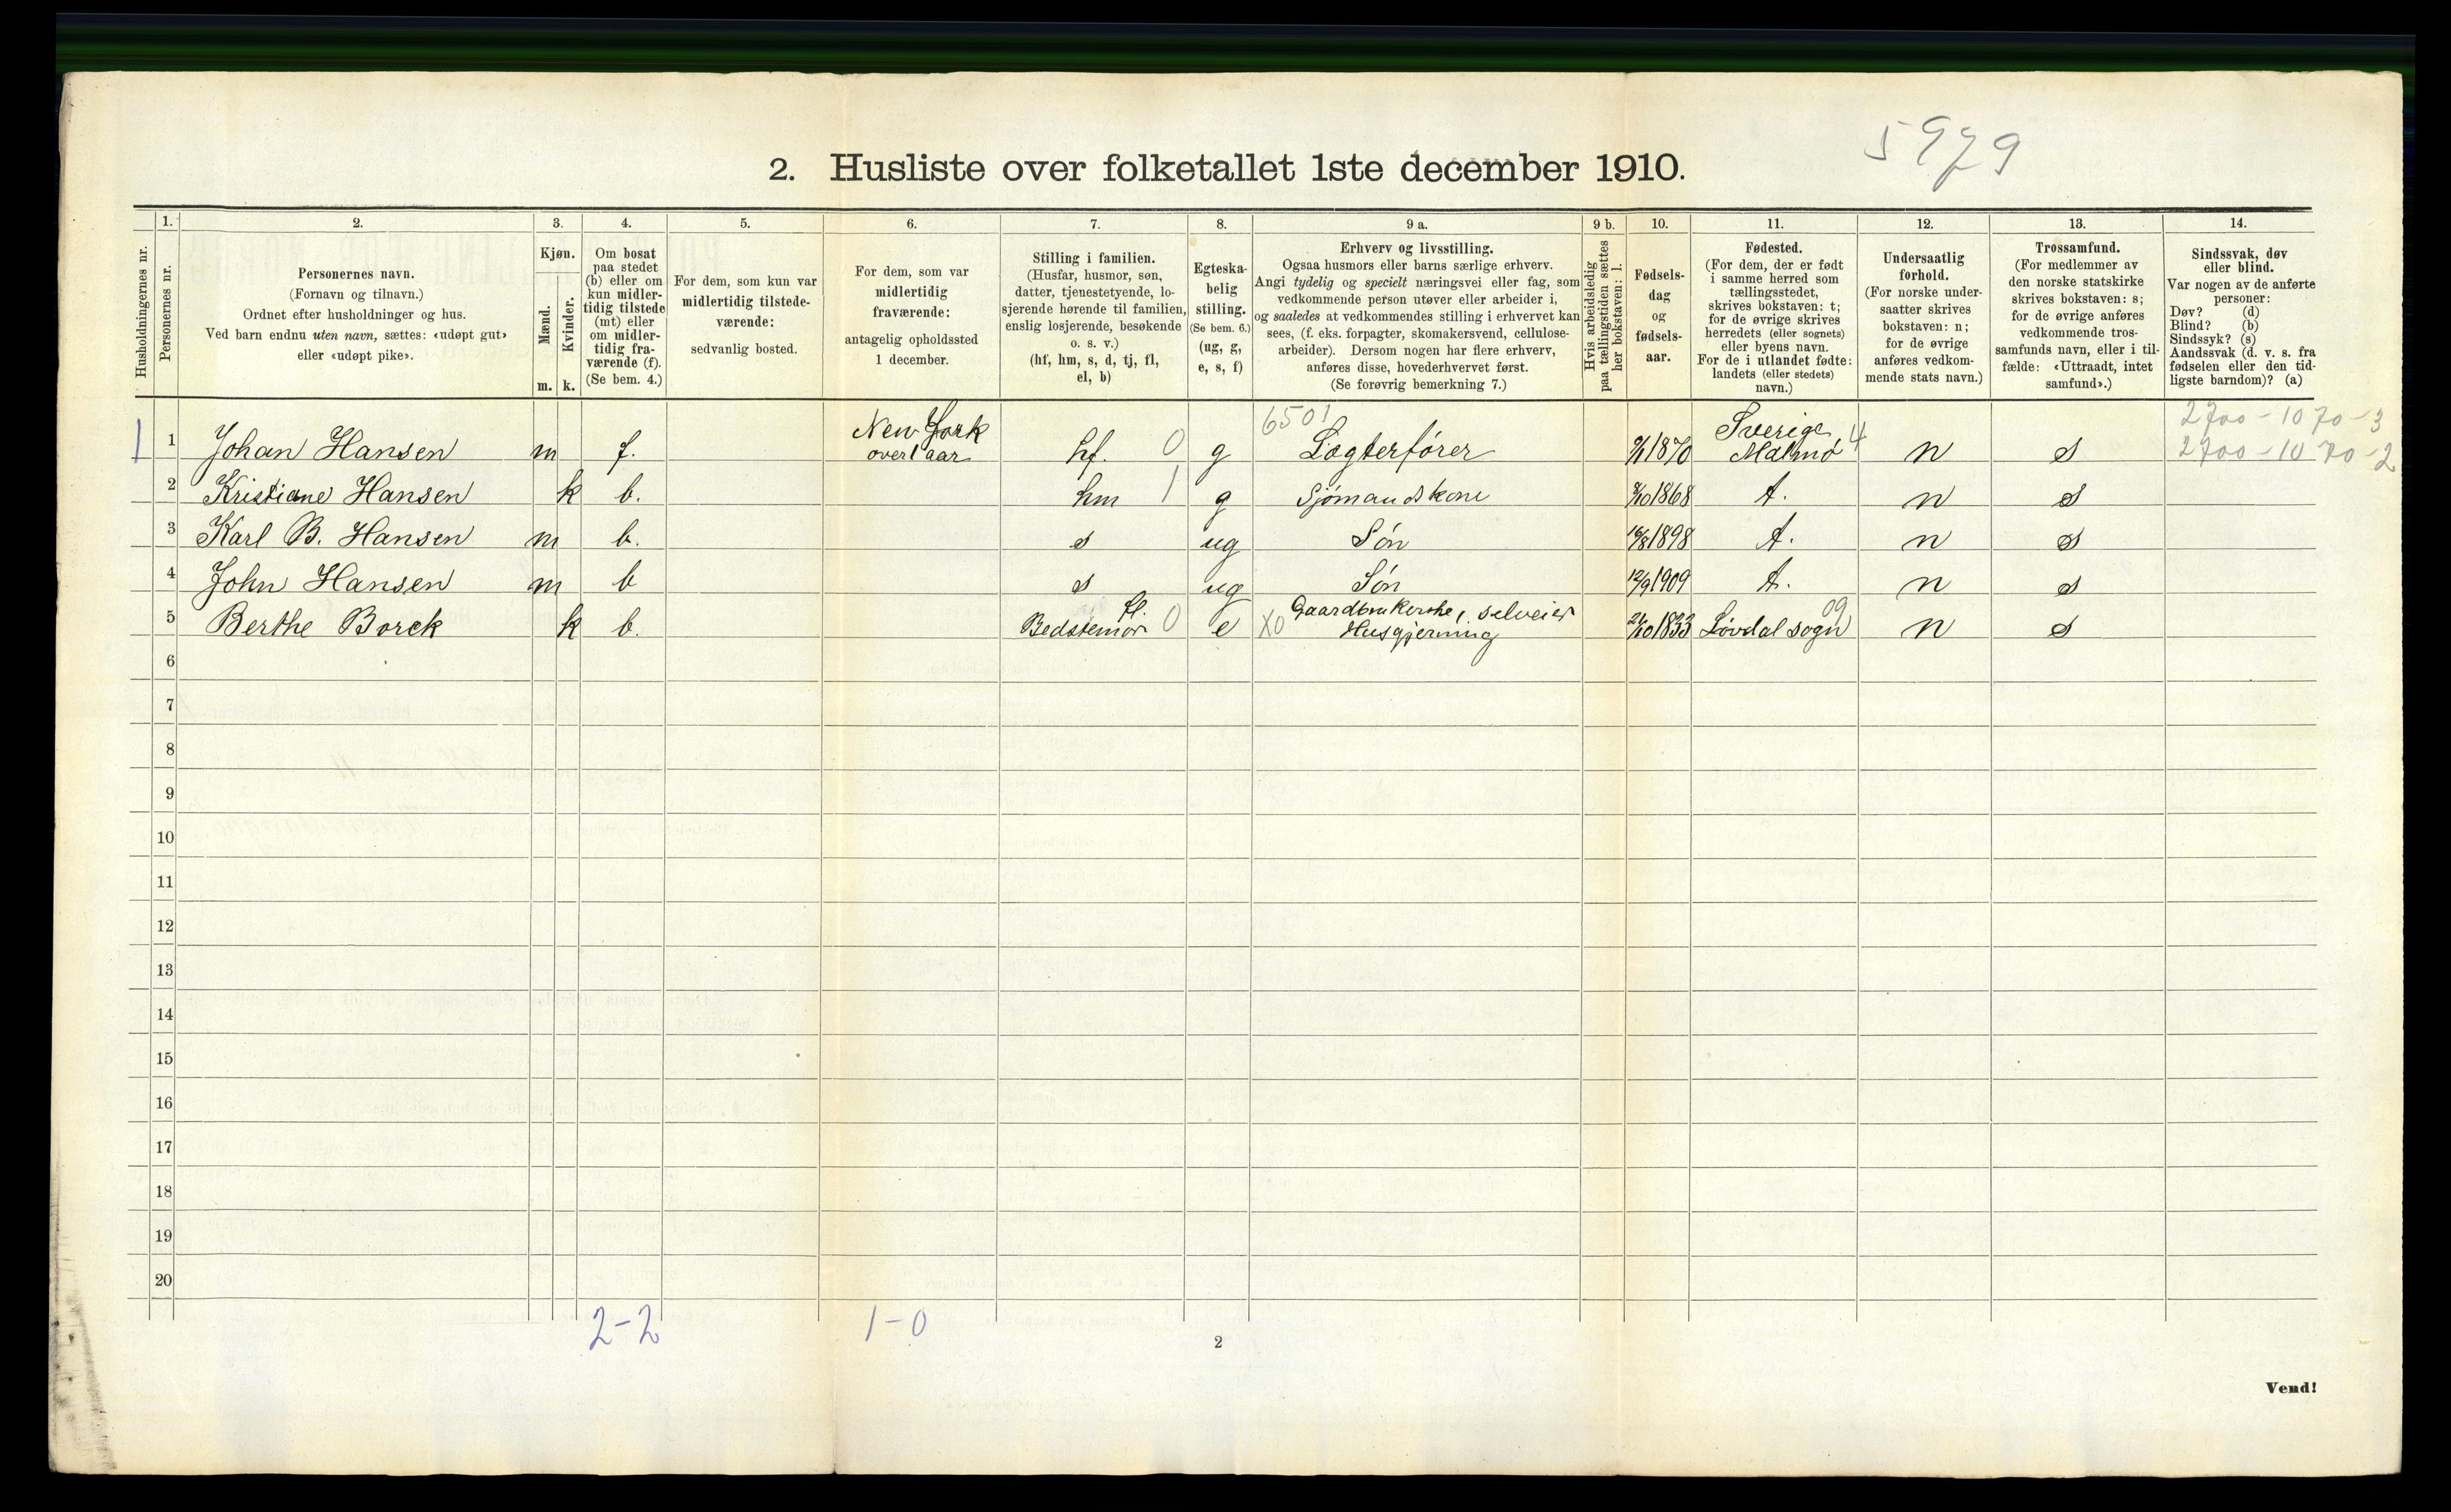 5979
2. Husliste over folketallet 1ste december 1910.
Husholdningernes nr.
1.
Personernes nr.
2.
Personernes navn.
(Fornavn og tilnavn.)
Ordnet efter husholdninger og hus.
Ved barn endnu uten navn, sættes: «udøpt gut»
eller «udøpt pike».
3.
Kjøn.
Mænd.
Kvinder.
m. k.
4.
Om bosat
paa stedet
(b) eller om
kun midler-
tidig tilstede
(mt) eller
om midler-
tidig fra-
værende (f).
(Se bem. 4.)
5.
For dem, som kun var
midlertidig tilstede-
værende:
sedvanlig bosted.
6.
For dem, som var
midlertidig
fraværende:
antagelig opholdssted
1 december.
7.
Stilling i familien.
(Husfar, husmor, søn,
datter, tjenestetyende, lo-
sjerende hørende til familien,
enslig losjerende, besøkende
o. s. v.)
(hf, hm, s, d, tj, fl,
el, b)
8.
Egteska-
belig
stilling.
(Se bem. 6.)
(ug, g,
e, s, f)
9 a.
Erhverv og livsstilling.
Ogsaa husmors eller barns særlige erhverv.
Angi tydelig og specielt næringsvei eller fag, som
vedkommende person utøver eller arbeider i,
og saaledes at vedkommendes stilling i erhvervet kan
sees, (f. eks. forpagter, skomakersvend, cellulose-
arbeider). Dersom nogen har flere erhverv,
anføres disse, hovederhvervet først.
(Se forøvrig bemerkning 7.)
9 b.
Hvis arbeidsledig
paa tællingstiden sættes
her bokstaven: l.
10.
Fødsels-
dag
og
fødsels-
aar.
11.
Fødested.
(For dem, der er født
i samme herred som
tællingsstedet,
skrives bokstaven: t;
for de øvrige skrives
herredets (eller sognets)
eller byens navn.
For de i utlandet fødte:
landets (eller stedets)
navn.)
12.
Undersaatlig
forhold.
(For norske under-
saatter skrives
bokstaven: n;
for de øvrige
anføres vedkom-
mende stats navn.)
13.
Trossamfund.
(For medlemmer av
den norske statskirke
skrives bokstaven: s;
for de øvrige anføres
vedkommende tros-
samfunds navn, eller i til-
fælde: «Uttraadt, intet
samfund».)
14.
Sindssvak, døv
eller blind.
Var nogen av de anførte
personer:
Døv? (d)
Blind? (b)
Sindssyk? (s)
Aandssvak (d. v. s. fra
fødselen eller den tid-
ligste barndom)? (a)
New York 6501 Sverige 2700-1070-3
1 1 Johan Hansen m f. over 1 aar hf. 0 g Logterfører 1870 Malmø 4 n s 2700-1070-2
2 Kristiane Hansen k b. hm 1 g Sjømandskone 1868 t. n s
3 Karl B. Hansen m b. s ug Søn 1898 t. n s
4 John Hansen m b s ug Søn 12/9 1909 t. n s
fl. Gaardbrukerske, selveier 09
5 Berthe Borck k b. Bedstemor 0 e X0 Husgjerning 1833 Løvdal sogn n s
6
7
8
9
10
11
12
13
14
15
16
17
18
19
20
2-2 1-0
2
Vend!